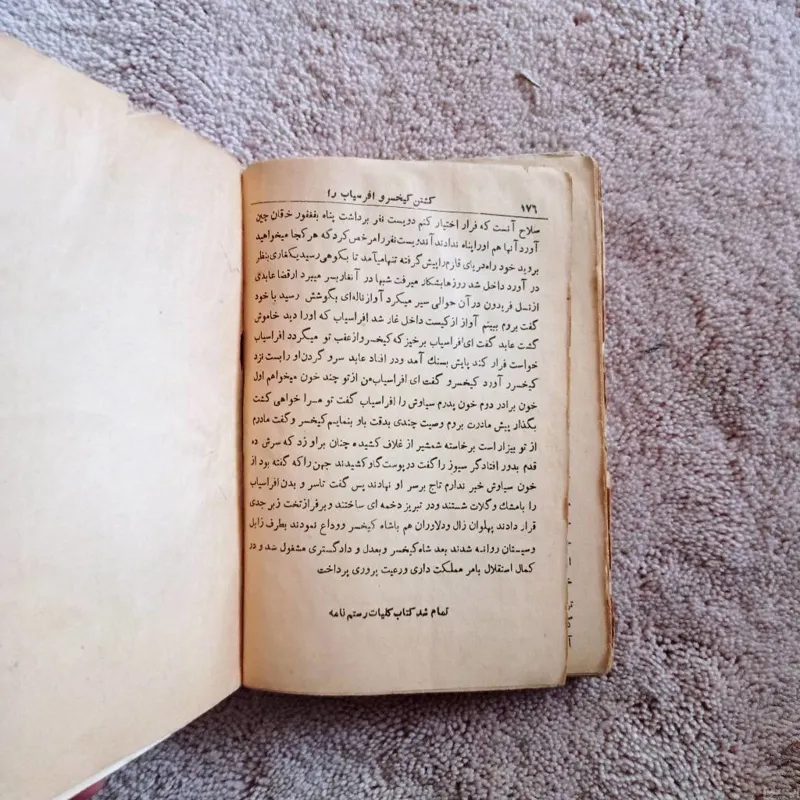 ۱۷۶
کشتن کیخسرو افراسیاب را
صلاح آنست که فرار اختیار کنم دویست نفر برداشت پناه بفغفور خاقان چین
آورد آنها هم اورا پناه ندادند آندویست نفر را مرخص کرد که هر کجا میخواهید
بروید خود راه دریای قلزم را پیش گرفته تنها میآمد تا بکوهی رسید یکغاری بنظر
در آورد داخل شد روزها بشکار میرفت شبها در آنغار بسر میبرد از قضا عابدی
از نسل فریدون در آن حوالی سیر میکرد آواز ناله‌ای بگوشش رسید با خود
گفت بروم ببینم آواز از کیست داخل غار شد افراسیاب که اورا دید خاموش
گشت عابد گفت ای افراسیاب برخیز که کیخسرو از عقب تو میگردد افراسیاب
خواست فرار کند پایش بسنگ آمد ودر افتاد عابد سر و گردن او را بست نزد
کیخسرر آورد کیخسرو گفت ای افراسیاب من از تو چند خون میخواهم اول
خون برادر دوم خون پدرم سیاوش را افراسیاب گفت تو مرا خواهی کشت
بگذار پیش مادرت بروم وصیت چندی بدقت باو بنمایم کیخسر وگفت مادرم
از تو بیزار است برخاسته شمشیر از غلاف کشیده چنان براو زد که سرش ده
قدم بدور افتاد گر سیوز را گفت در پوست گاو کشیدند جهن را که گفته بود از
خون سیاوش خبر ندارم تاج برسر او نهادند پس گفت تاسر و بدن افراسیاب
را بامشك وگلاب شستند ودر تبریز دخمه ای ساختند و برفراز تخت زبرجدی
قرار دادند پهلوان زال ودلاوران هم باشاه کیخسر ووداع نمودند بطرف زابل
وسیستان روانه شدند بعد شاه کیخسر وبعدل و دادگستری مشغول شد و در
کمال استقلال بامر مملکت داری ورعیت پروری پرداخت
تمام شد کتاب کلیات رستم نامه